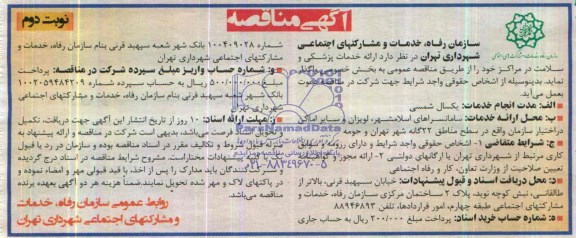 آگهی مناقصه
نوبت دوم
سازمان رفاه، خدمات و مشارکتهای اجتماعی
شهرداری تهران در نظر دارد ارائه خدمات پزشکی و
سلامت در مراکز خود را از طریق مناقصه عمومی به بخش خصوصی واگذار
نماید. بدینوسیله از اشخاص حقوقی واجد شرایط جهت شرکت در مناقصه دعوت
بعمل می‌آید.
الف: مدت انجام خدمات: یکسال شمسی
ب: محل ارائه خدمات: سامانسراهای اسلامشهر، لویزان و سایر اماکن
در اختیار سازمان واقع در سطح مناطق ۲۲گانه شهر تهران و حومه
ج: شرایط متقاضی: ۱- اشخاص حقوقی واجد شرایط و دارای رزومه و سوابق
کاری مرتبط از شهرداری تهران یا ارگانهای دولتی ۲- ارائه مجوز
تعیین صلاحیت از وزارت تعاون، کار و رفاه اجتماعی
د: محل دریافت اسناد و قبول پیشنهادات: خیابان سپهبد قرنی، بالاتر از
طالقانی، نبش کوچه نوید، پلاک ۲ ساختمان مرکزی سازمان رفاه، خدمات و
مشارکتهای اجتماعی طبقه چهارم، امور قراردادها، تلفن ۸۸۹۴۶۸۹۳
ه: شماره حساب خرید اسناد: پرداخت مبلغ ۲۰۰/۰۰۰ ریال به حساب جاری
شماره ۱۰۰۴۰۹۰۲۸ بانک شهر شعبه سپهبد قرنی بنام سازمان رفاه، خدمات و
مشارکتهای اجتماعی شهرداری تهران
و: شماره حساب واریز مبلغ سپرده شرکت در مناقصه: پرداخت
ریال به حساب سپرده شماره ۱۰۰۲۰۵۹۴۸۴۲۰۹
بانک شهر شعبه سپهبد قرنی بنام سازمان رفاه، خدمات و مشارکتهای اجتماعی
شهرداری تهران
ز: مهلت ارائه اسناد: ۱۰ روز از تاریخ انتشار این آگهی جهت دریافت، تکمیل
و تحویل اسناد فرصت می‌باشد، بدیهی است شرکت در مناقصه و ارائه پیشنهاد به
منزله قبول شروط و تکالیف مقرر در اسناد مناقصه بوده و سازمان در رد یا قبول
یک یا کلیه پیشنهادات مختار است. مشروح شرایط مناقصه در اسناد درج گردیده
کنندگان باید مدارک را پس از اخذ، با قید قبولی مهر و امضاء نموده و
در پاکتهای لاک و مهر شده تحویل نمایند. ضمناً هزینه هر دو آگهی بعهده برنده
مناقصه می‌باشد.
روابط عمومی سازمان رفاه، خدمات
و مشارکتهای اجتماعی شهرداری تهران
ParsNamadData
۰۲۱-۸۸۳۴۹۶۷۰-۵